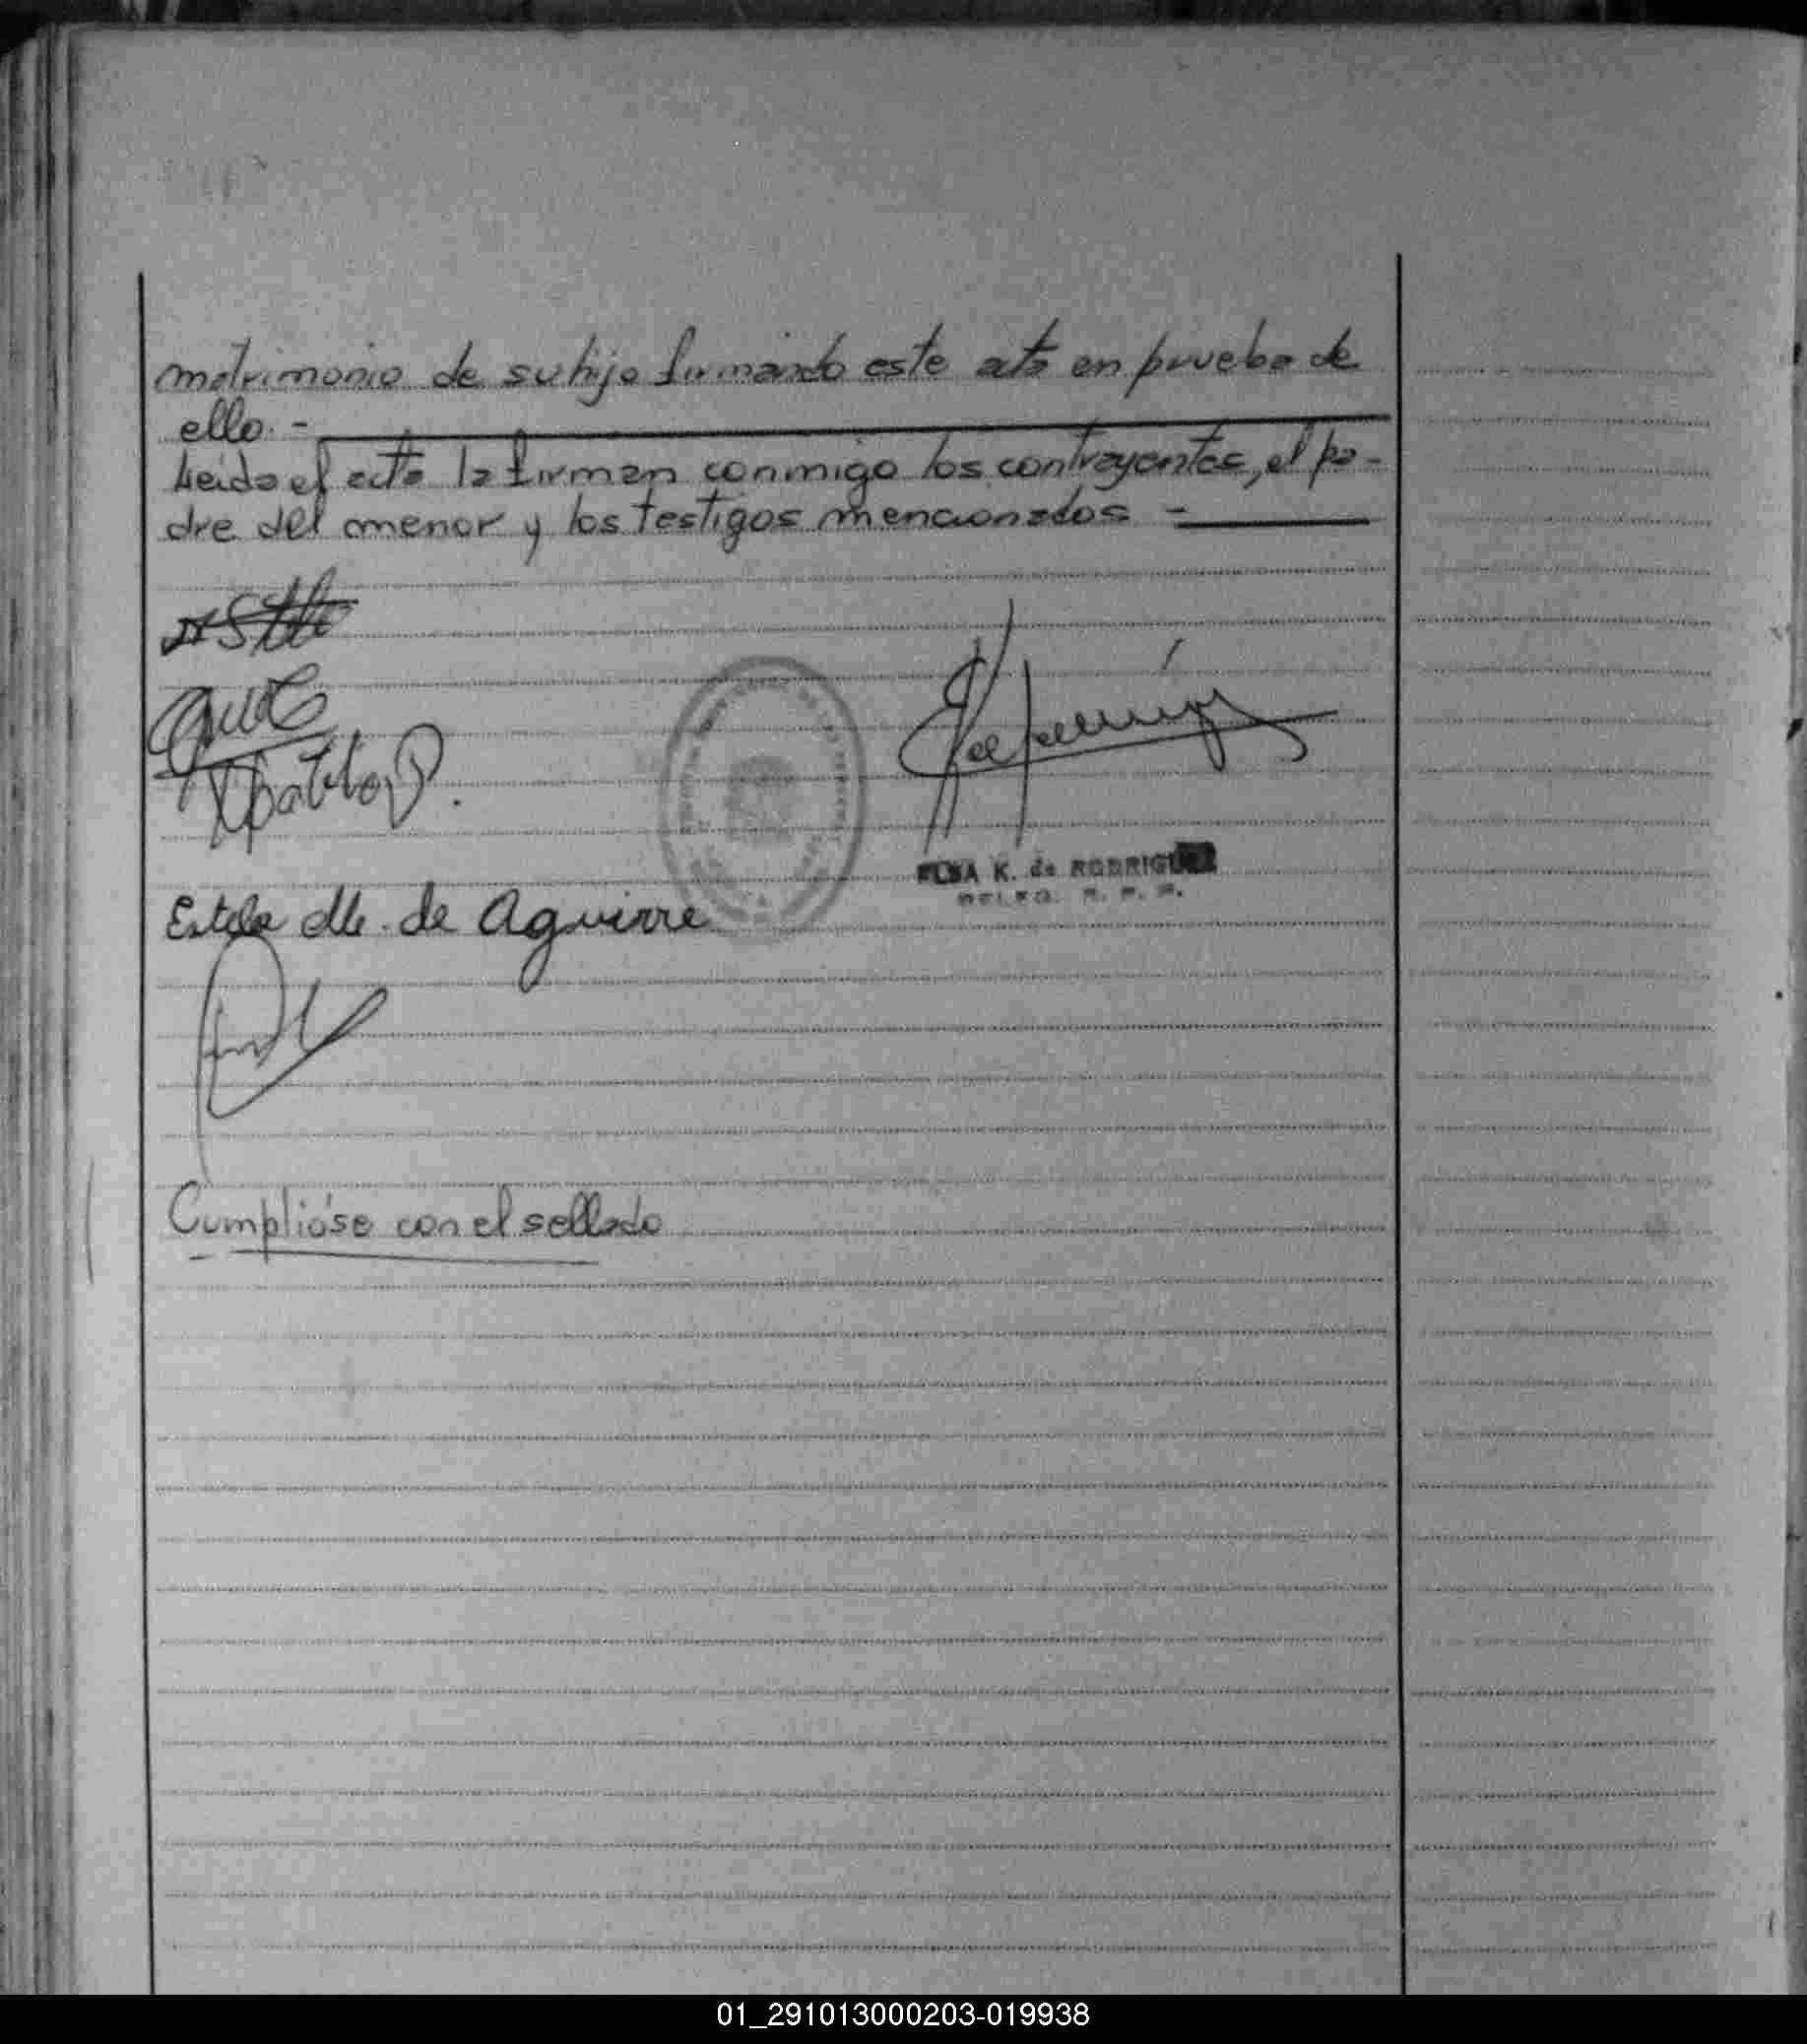 matrimonio de su hijo firmando este acta en prueba de
ello. -
Leída el acta la firman conmigo los contrayentes, el pa-
dre del menor y los testigos mencionados -
Pablo
Estela M. de Aguirre
ELSA K. de RODRIGUEZ
DELEG. R. P. P.
Cumplióse con el sellado
01_291013000203-019938